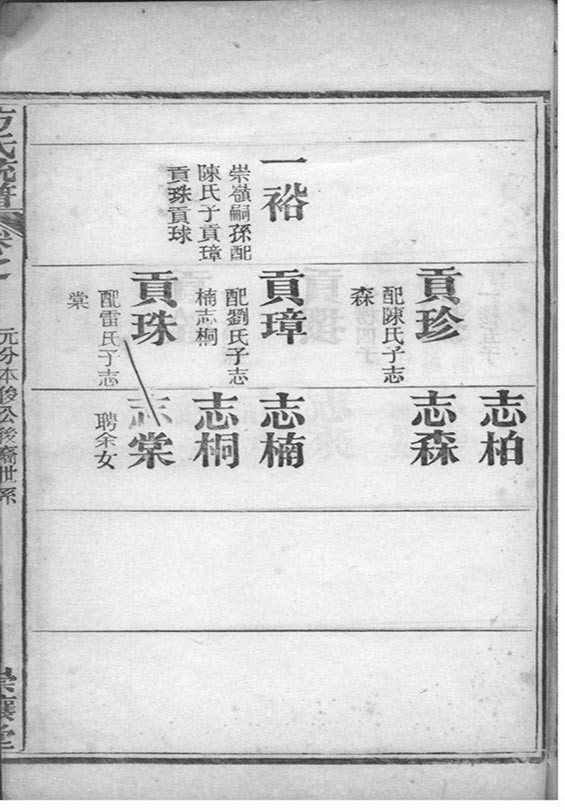 一裕
崇嶺嗣孫配
陳氏子貢璋
貢珠貢球
貢珍
配陳氏子志
森
貢璋
配劉氏子志
楠志桐
貢珠
配雷氏子志
棠
志柏
志森
志楠
志桐
志棠
聘余女
方氏統譜
卷之
元分本俊公後裔世系
崇讓堂